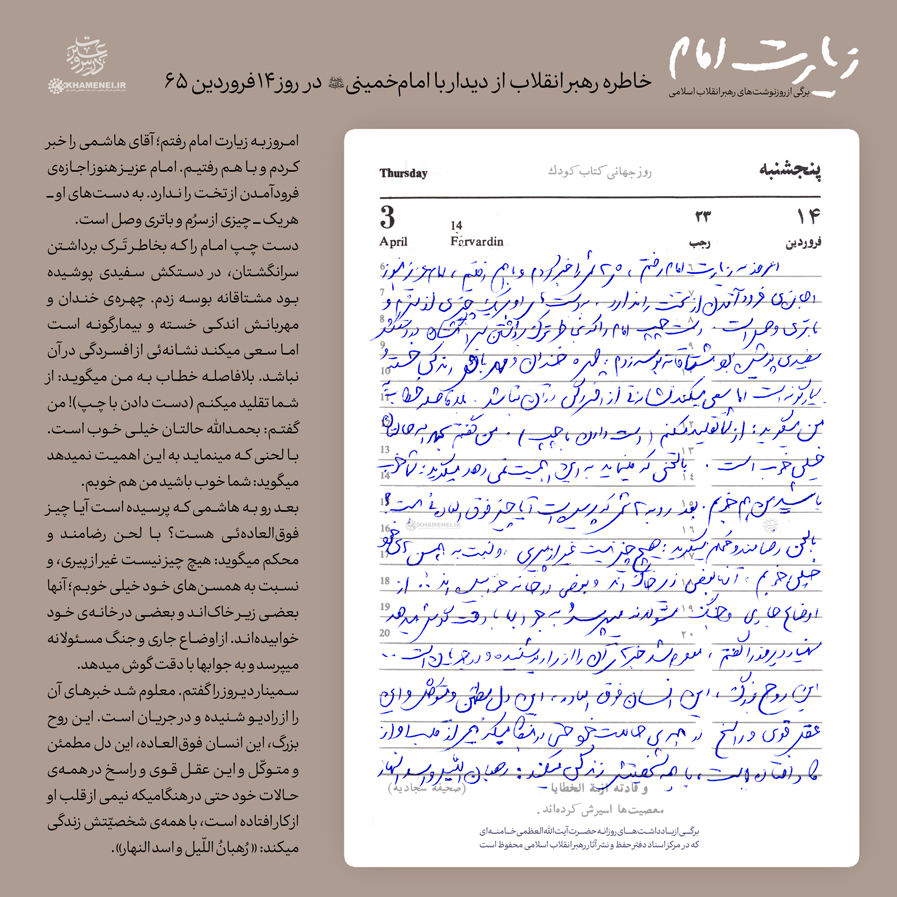 زیارت امام
برگی از روزنوشت‌های رهبر انقلاب اسلامی
خاطره رهبر انقلاب از دیدار با امام‌خمینی در روز ۱۴ فروردین ۶۵
درس و عبرت
KHAMENEI.IR
امروز به زیارت امام رفتم؛ آقای هاشمی را خبر
کردم و با هم رفتیم. امام عزیز هنوز اجازه‌ی
فرودآمدن از تخت را ندارد. به دست‌های او ـ
هر یک ـ چیزی از سرُم و باتری وصل است.
دست چپ امام را که بخاطر تَرک برداشتن
سرانگشتان، در دستکش سفیدی پوشیده
بود مشتاقانه بوسه زدم. چهره‌ی خندان و
مهربانش اندکی خسته و بیمارگونه است
اما سعی میکند نشانه‌ئی از افسردگی در آن
نباشد. بلافاصله خطاب به من میگوید: از
شما تقلید میکنم (دست دادن با چپ)! من
گفتم: بحمدالله حالتان خیلی خوب است.
با لحنی که مینماید به این اهمیت نمیدهد
میگوید: شما خوب باشید من هم خوبم.
بعد رو به هاشمی که پرسیده است آیا چیز
فوق‌العاده‌ئی هست؟ با لحن رضامند و
محکم میگوید: هیچ چیز نیست غیر از پیری، و
نسبت به همسن‌های خود خیلی خوبم؛ آنها
بعضی زیر خاک‌اند و بعضی در خانه‌ی خود
خوابیده‌اند. از اوضاع جاری و جنگ مسئولانه
میپرسد و به جوابها با دقت گوش میدهد.
سمینار دیروز را گفتم. معلوم شد خبرهای آن
را از رادیو شنیده و در جریان است. این روح
بزرگ، این انسان فوق‌العاده، این دل مطمئن
و متوکّل و این عقل قوی و راسخ در همه‌ی
حالات خود حتی در هنگامیکه نیمی از قلب او
از کار افتاده است، با همه‌ی شخصیّتش زندگی
میکند: «رُهبانُ اللّیل و اسد النهار».
پنجشنبه
روز جهانی کتاب کودک
Thursday
۱۴
فروردین
۲۳
رجب
14
Farvardin
3
April
امروز به زیارت امام رفتم، هاشمی را خبر کردم و با هم رفتیم، امام عزیز هنوز
اجازه‌ی فرود آمدن از تخت را ندارد. به دست‌های او هر یک چیزی از سرم و
باتری وصل است. دست چپ امام را که بخاطر ترک برداشتن سرانگشتان در دستکش
سفیدی پوشیده بود مشتاقانه بوسه زدم، چهره خندان و مهربانش اندکی خسته و
بیمارگونه است اما سعی میکند نشانه‌ئی از افسردگی در آن نباشد. بلافاصله خطاب به
من میگوید: از شما تقلید میکنم (دست دادن با چپ). من گفتم بحمدالله حالتان
خیلی خوب است. با لحنی که مینماید به این اهمیت نمی‌دهد میگوید: شما خوب
باشید من هم خوبم. بعد رو به هاشمی که پرسیده است آیا چیز فوق‌العاده‌ئی هست؟
با لحن رضامند و محکم میگوید: هیچ چیز نیست غیر از پیری، و نسبت به همسن‌های خود
خیلی خوبم، آنها بعضی زیر خاک‌اند و بعضی در خانه خوابیده‌اند... از
اوضاع جاری و جنگ مسئولانه میپرسد و به جوابها با دقت گوش میدهد
سمینار دیروز را گفتم، معلوم شد خبرهای آن را از رادیو شنیده و در جریان است...
این روح بزرگ، این انسان فوق‌العاده، این دل مطمئن و متوکل و این
عقل قوی و راسخ در همه‌ی حالات خود حتی در هنگامیکه نیمی از قلب او از
کار افتاده است، با همه شخصیتش زندگی میکند: رهبان اللیل و اسد النهار
و قادته ازمة الخطایا (صحیفهٔ سجادیه)
معصیت‌ها اسیرش کرده‌اند.
برگی از یادداشت‌های روزانه حضرت آیت‌الله‌العظمی خامنه‌ای
که در مرکز اسناد دفتر حفظ و نشر آثار رهبر انقلاب اسلامی محفوظ است